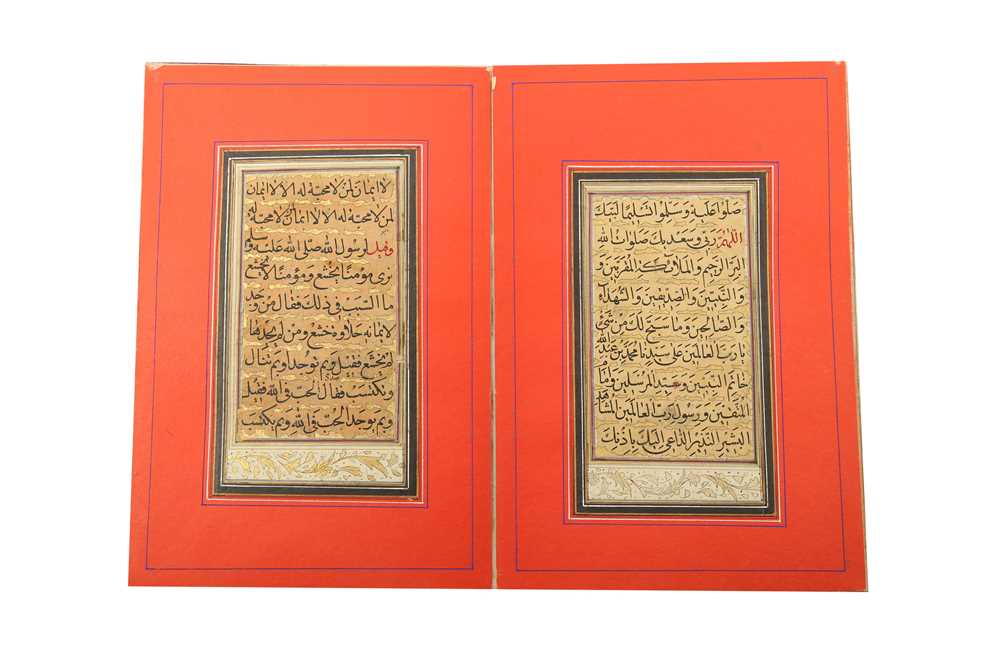 صلوا عليه وسلموا تسليما لبيك
اللهم ربي وسعديك صلوات الله
البر الرحيم والملائكة المقربين و
والنبيين والصديقين والشهداء
والصالحين وما سبح لك من شيء
يا رب العالمين على سيدنا محمد بن عبد الله
خاتم النبيين وسيد المرسلين وامام
المتقين ورسول رب العالمين الشاهد
البشير النذير الداعي اليك باذنك
لا ايمان لمن لا محبة له الا لا ايمان
لمن لا محبة له الا لا ايمان لمن لا محبة له
وقيل لرسول الله صلى الله عليه وسلم
نرى مؤمنا يخشع ومؤمنا لا يخشع
ما السبب في ذلك فقال من وجد
لايمانه حلاوة خشع ومن لم يجدها
لم يخشع فقيل وبم توجد او بم تنال
وتكتسب فقال الحب في الله فقيل
وبم يوجد الحب في الله وبم يكتسب